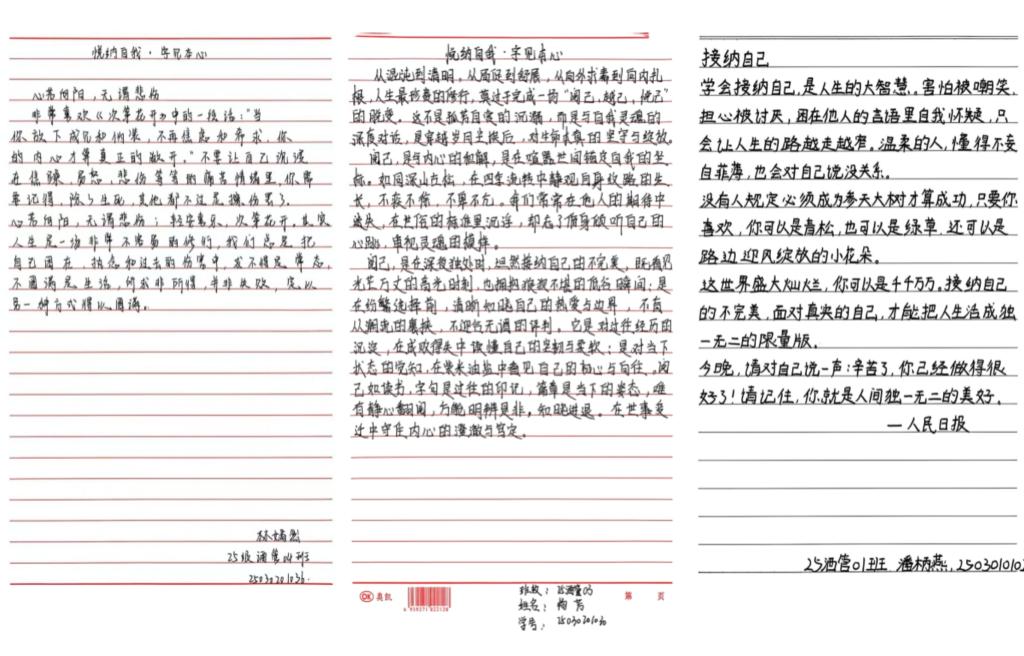 悦纳自我·字见本心
心若向阳，无谓悲伤
非常喜欢《次第花开》中的一段话："当
你放下成见和伪装，不再焦虑和苛求，你
的内心才算真正的敞开。"不要让自己沉浸
在焦躁、易怒、悲伤等等的痛苦情绪里，你需
要记得，除了生死，其他都不过是擦伤罢了。
心若向阳，无谓悲伤；轻安喜乐，次第花开，其实
人生是一场非常不容易的修行，我们总是把
自己困在执念和过去的伤害中，求不得是常态，
不圆满是生活，所求非所得，并非失败，实以
另一种方式得以圆满。
林
25级酒管04班
2503020103
悦纳自我·字见本心
从混沌到清明，从局促到舒展，从向外求索到向内扎
根，人生最珍贵的修行，莫过于完成一场"阅己、越己、悦己"
的蜕变。这不是孤芳自赏的沉溺，而是与自我灵魂的
深度对话，是穿越岁月尘埃后，对生命本真的坚守与绽放。
阅己，是与内心的和解，是在喧嚣世间锚定自我的坐
标。如同深山古松，在四季流转中静观自身纹路的生
长，不衰不馁，不卑不亢。我们常常在他人的期待中
迷失，在世俗的标准里沉浮，却忘了俯身倾听自己的
心跳，审视灵魂的模样。
阅己，是在深夜独处时，坦然接纳自己的不完美，既看见
光芒万丈的高光时刻，也拥抱狼狈不堪的低谷瞬间；是
在纷繁选择前，清晰知晓自己的热爱与边界，不盲
从潮流的裹挟，不迎合无谓的评判。它是对过往经历的
沉淀，在成败得失中读懂自己的坚韧与柔软；是对当下
状态的觉知，在柴米油盐中遇见自己的初心与向往。阅
己如读书，字句是过往的印记，篇章是当下的姿态，唯
有静心翻阅，方能明辨是非，知晓进退。在世事变
迁中守住内心的澄澈与笃定。
奥凯
6 959271 822128
第 页
班级：25酒管03
姓名：
学号：25030201030
接纳自己
学会接纳自己，是人生的大智慧。害怕被嘲笑，
担心被讨厌，困在他人的言语里自我怀疑，只
会让人生的路越走越窄。温柔的人，懂得不妄
自菲薄，也会对自己说没关系。
没有人规定必须成为参天大树才算成功，只要你
喜欢，你可以是青松，也可以是绿草，还可以是
路边迎风绽放的小花朵。
这世界盛大灿烂，你可以是千千万万。接纳自己
的不完美，面对真实的自己，才能把人生活成独
一无二的限量版。
今晚，请对自己说一声：辛苦了，你已经做得很
好了！请记住，你就是人间独一无二的美好。
—人民日报
25酒管01班 潘柄燕，250301010